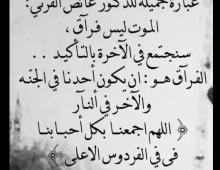 عبارة جميلة للدكتور عائض القرني:
الموت ليس فراق،
سنجتمع في الآخرة بالتأكيد . .
الفراق هو: ان يكون أحدنا في الجنه
والآخر في النار
﴿ اللهم اجمعنا بكل أحبابنا
في في الفردوس الاعلى ﴾